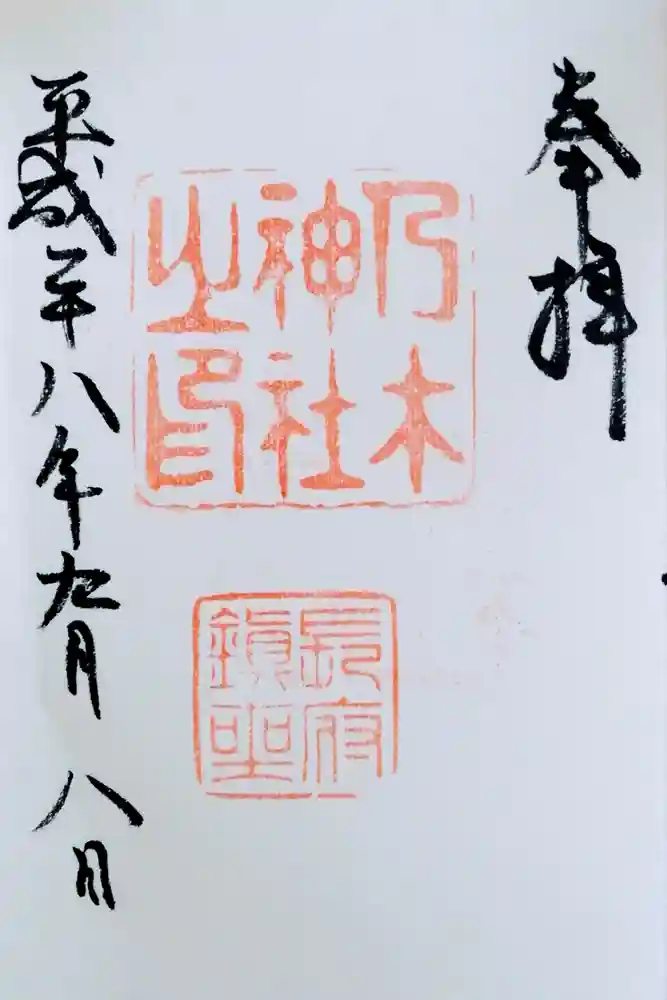 奉拝
乃木
神社
之印
長府
鎮坐
平成二十八年九月八日